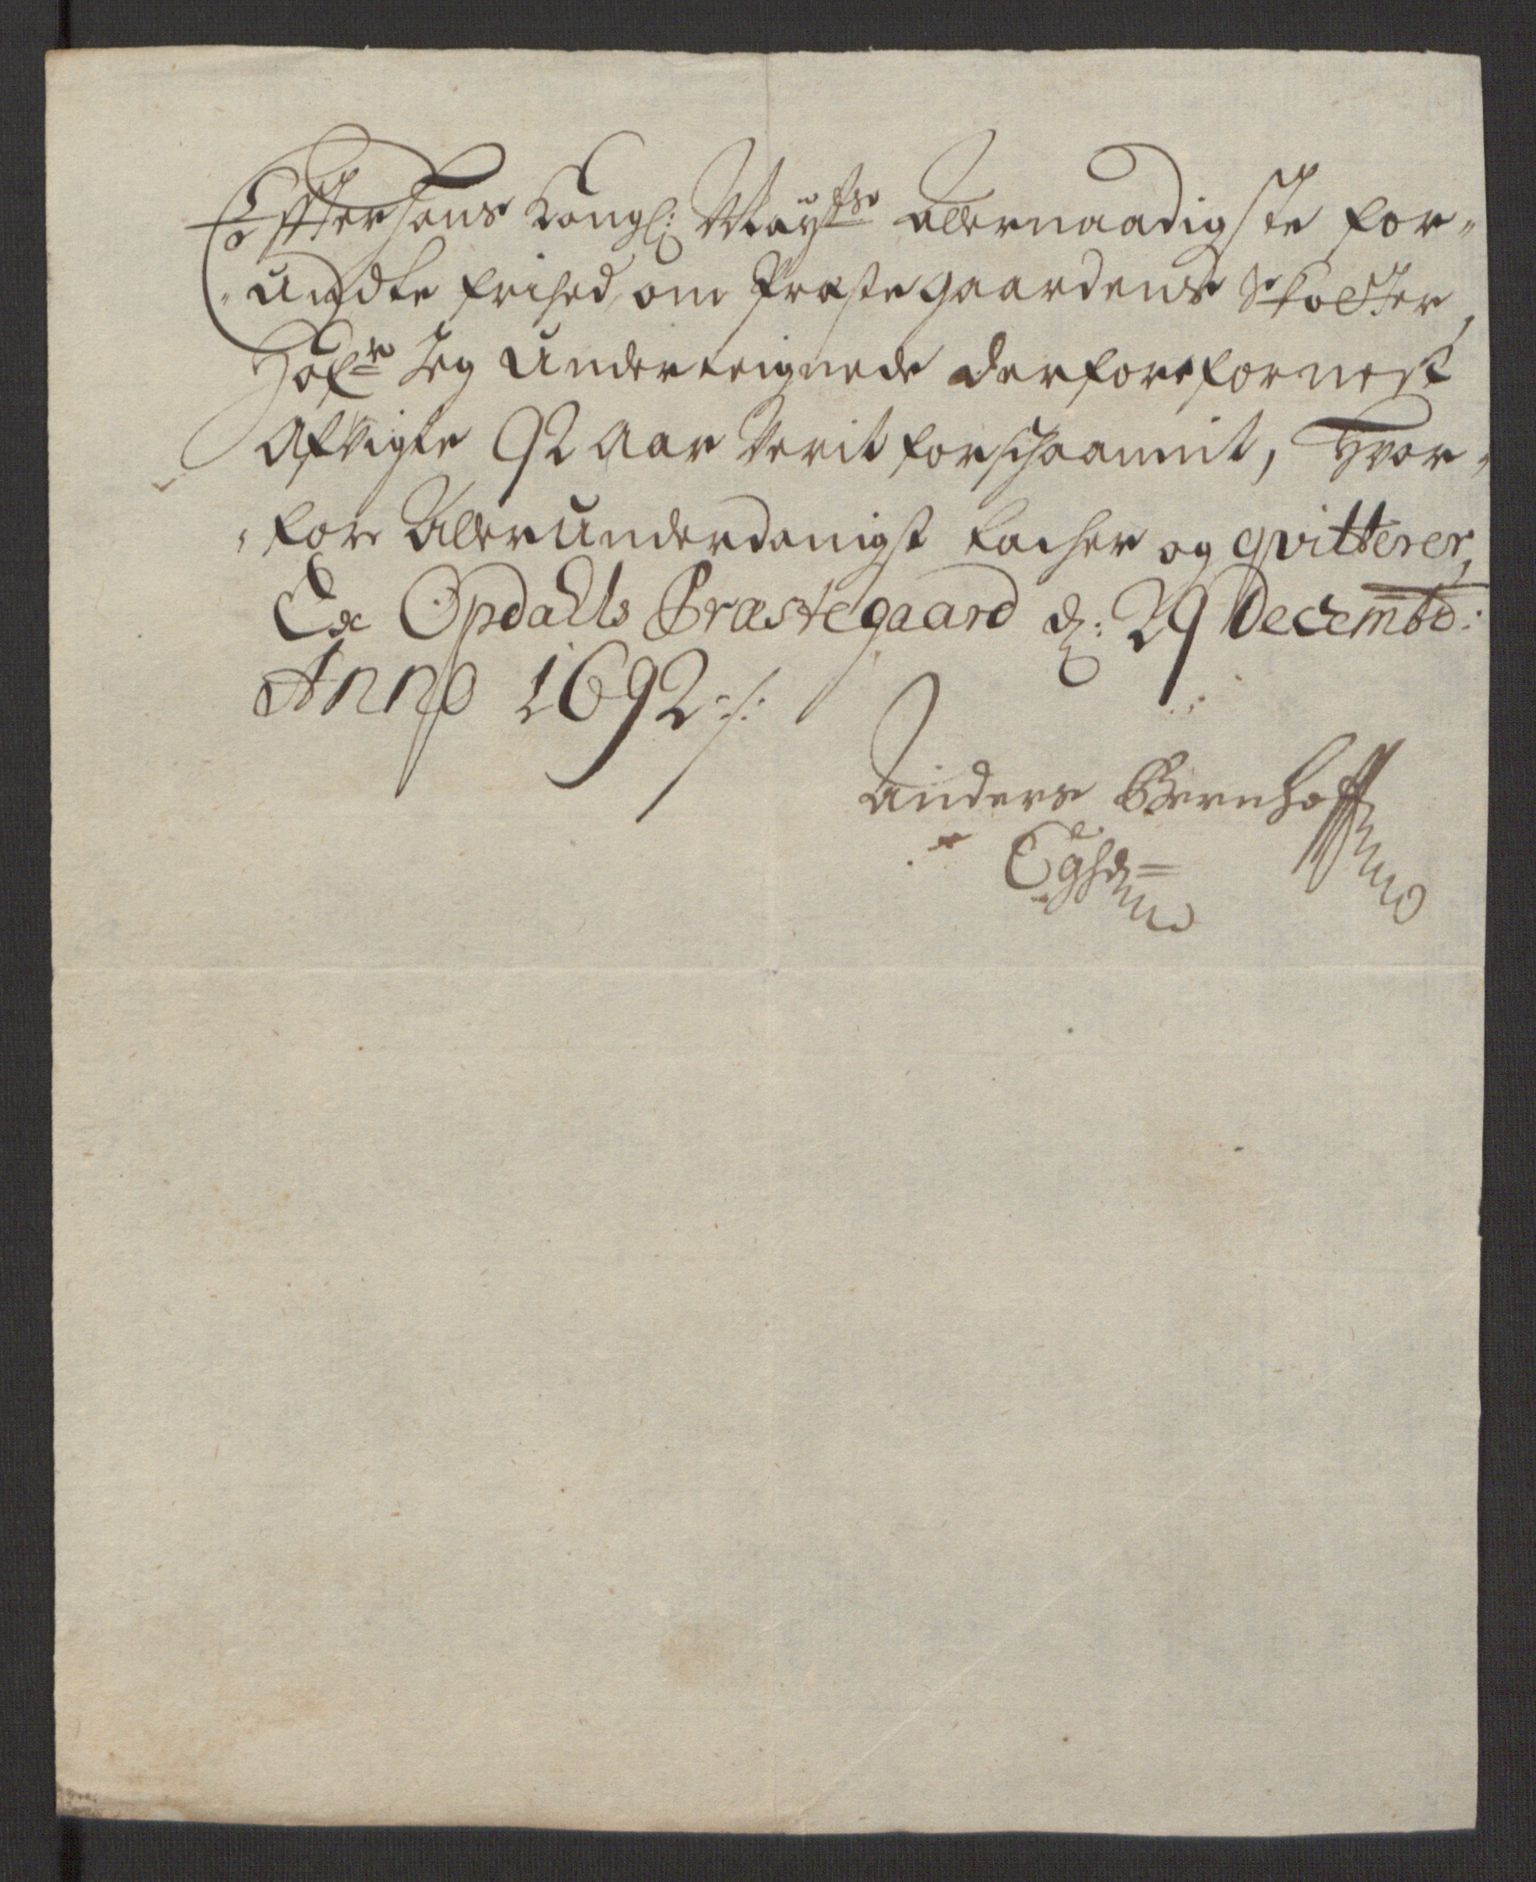 Effter hans Kongl: Maÿtts allernaadigste for-
undte frihed, om Præste gaardens Skatter,
Hafr Jeg Underteignede derfore fornest
Afvigte 92 Aar Verit forschaannit, Hvor-
fore Allerunderdanigst tacher og qvitterer,
Ex Opdalls Præstegaard d: 29 Decembr:
Anno 1692 ./.
Anders Bernhoff
Eghd=